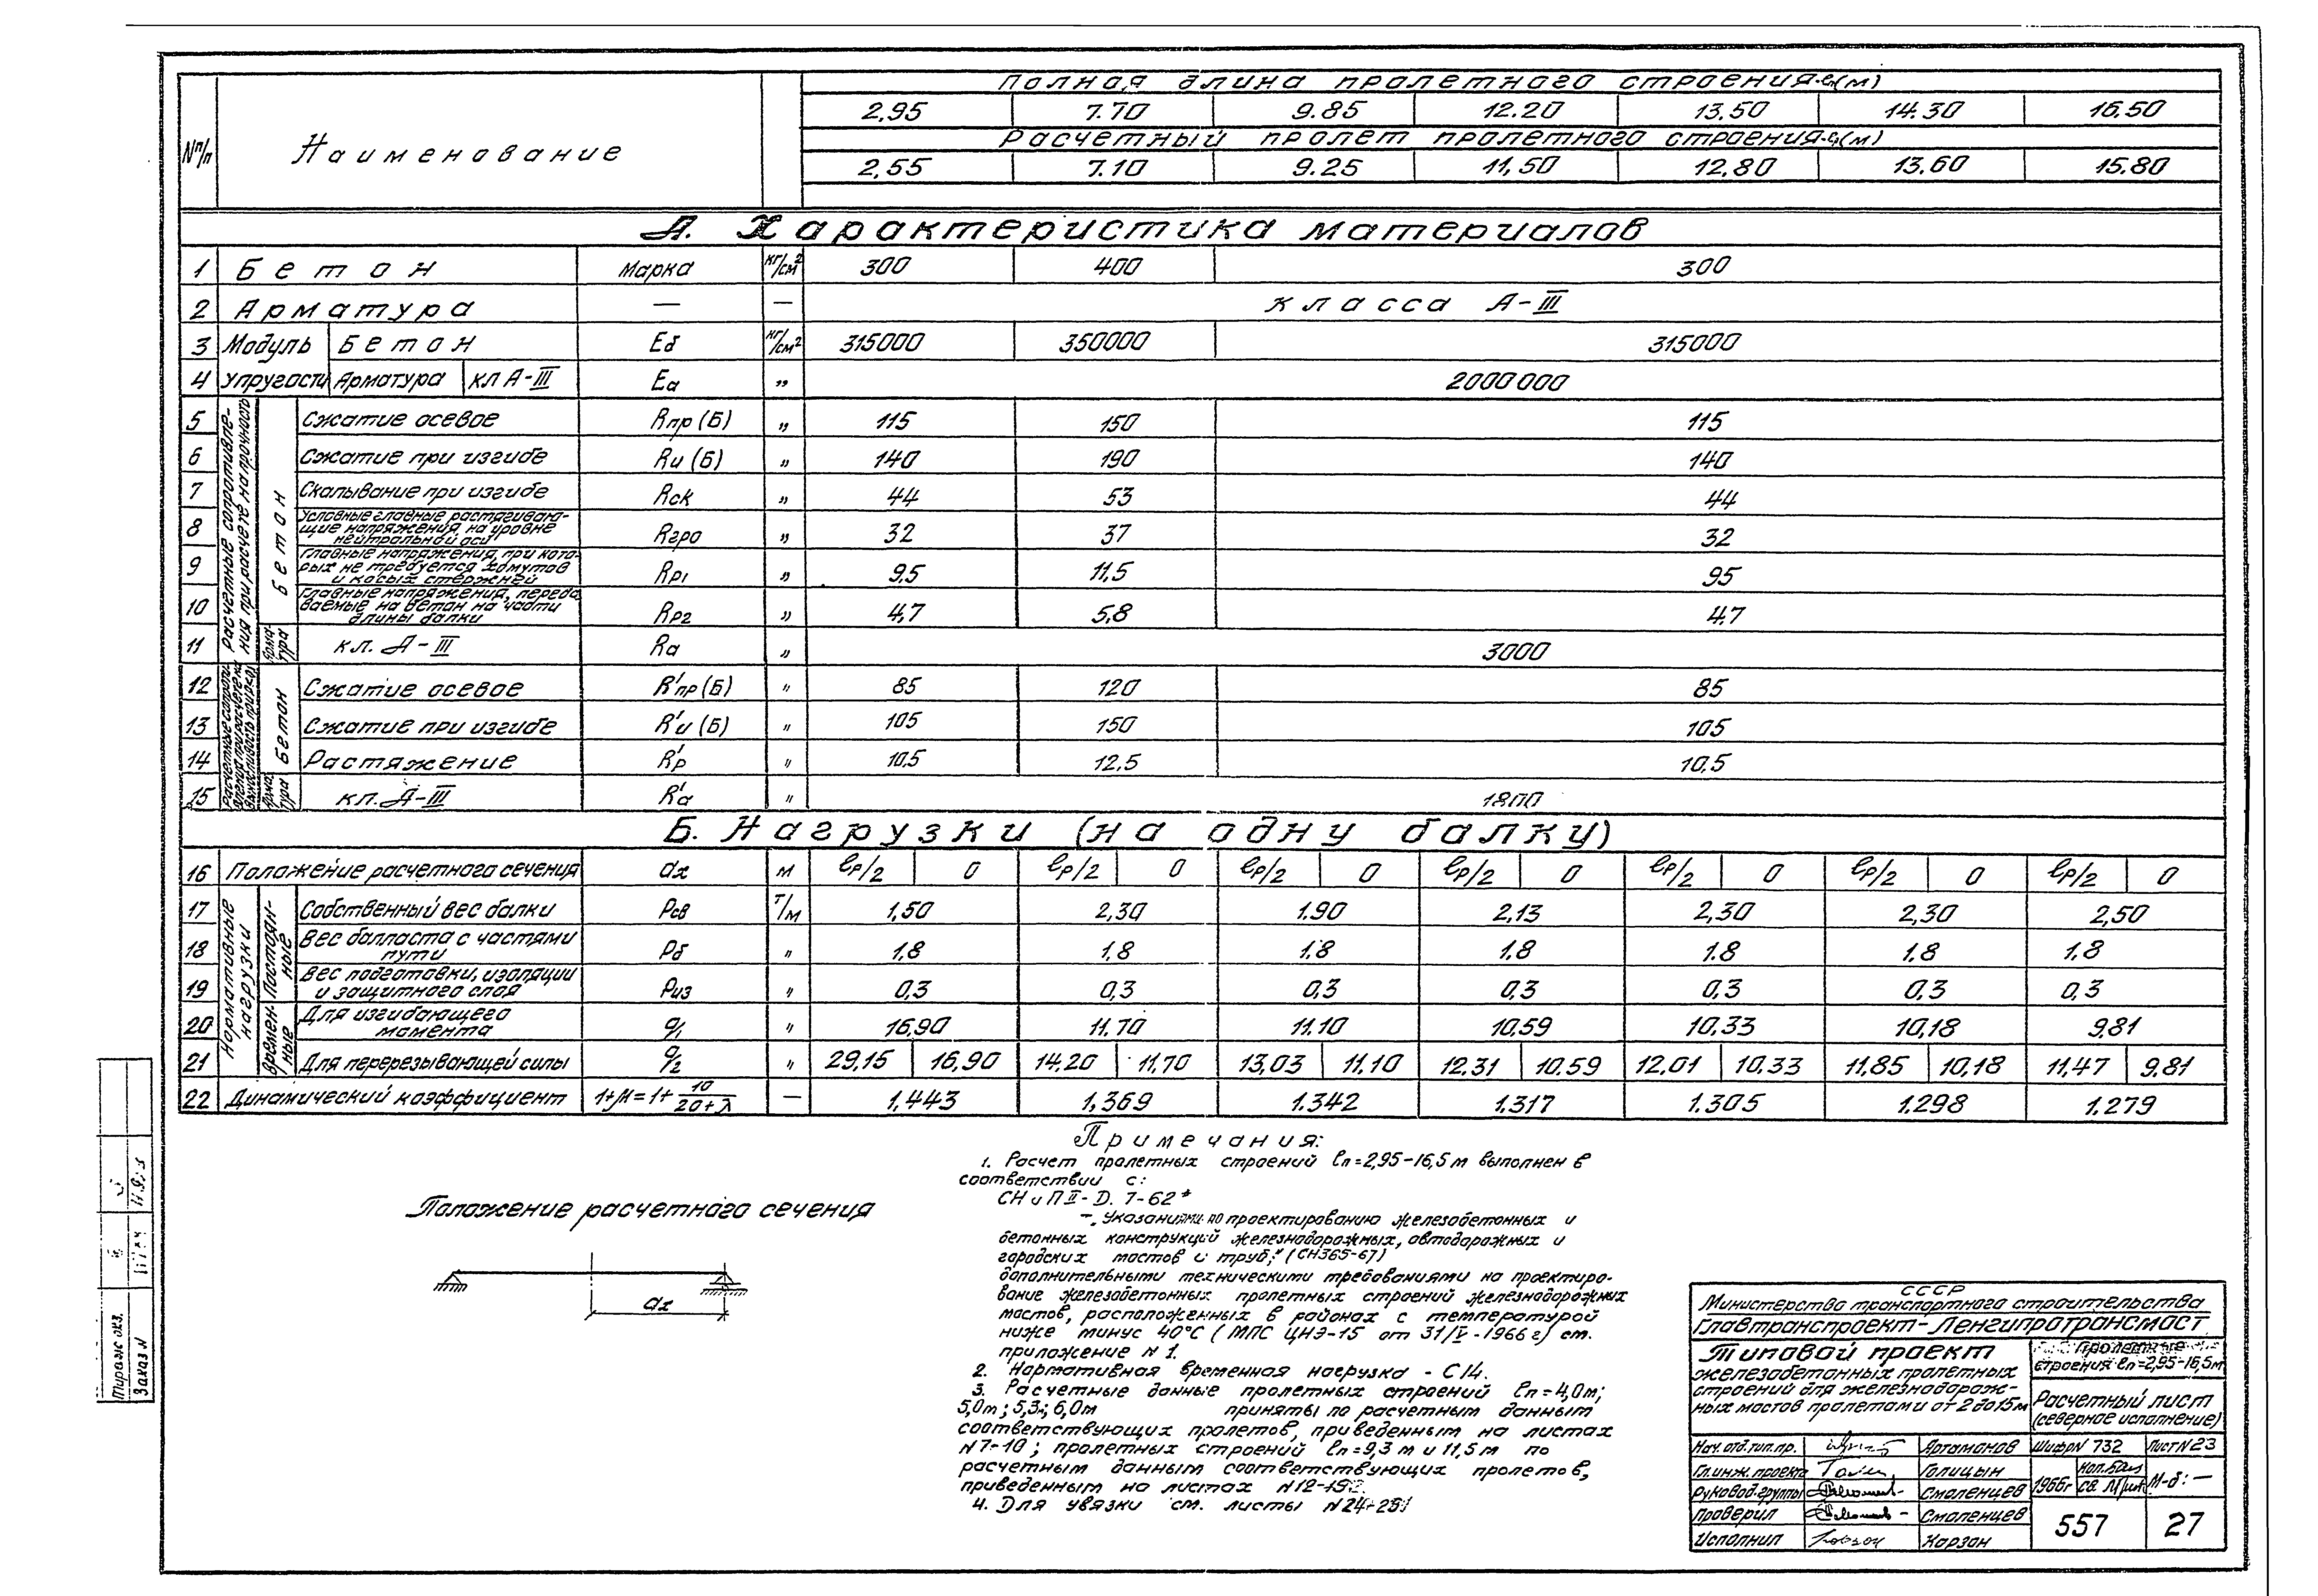 № п/п
Наименование
Полная длина пролетного строения ℓп (м)
2,95 7.70 9.85 12.20 13,50 14.30 16,50
Расчетный пролет пролетного строения ℓр (м)
2,55 7.10 9.25 11,50 12,80 13,60 15.80
А. Характеристика материалов
1 Бетон Марка кг/см² 300 400 300
2 Арматура — — класса А-III
3 Модуль Бетон Eб кг/см² 315000 350000 315000
4 упругости Арматура кл А-III Eа „ 2000000
Расчетные сопротивле-
ния при расчете на прочность
Бетон
5 Сжатие осевое Rпр (Б) „ 115 150 115
6 Сжатие при изгибе Rи (Б) „ 140 190 140
7 Скалывание при изгибе Rск „ 44 53 44
8 Условные главные растягиваю-
щие напряжения на уровне
нейтральной оси Rгро „ 32 37 32
9 Главные напряжения, при кото-
рых не требуется хомутов
и косых стержней Rр1 „ 9,5 11,5 95
10 Главные напряжения, переда
ваемые на бетон на части
длины балки Rр2 „ 4,7 5,8 4,7
Арма-
тура
11 кл. А-III Rа „ 3000
Бетон
12 Сжатие осевое R'пр (Б) „ 85 120 85
13 Сжатие при изгибе R'и (Б) „ 105 150 105
14 Растяжение R'р „ 10,5 12,5 10,5
Арма-
тура
15 кл. А-III R'а „ 1800
Б. Нагрузки (на одну балку)
16 Положение расчетного сечения ax м ℓр/2 0 ℓр/2 0 ℓр/2 0 ℓр/2 0 ℓр/2 0 ℓр/2 0 ℓр/2 0
Нормативные
нагрузки
Постоян-
ные
17 Собственный вес балки Рсв т/м 1,50 2,30 1.90 2,13 2,30 2,30 2,50
18 Вес балласта с частями
пути Рб „ 1,8 1,8 1,8 1,8 1.8 1,8 1,8
19 Вес подготовки, изоляции
и защитного слоя Риз „ 0,3 0,3 0,3 0,3 0,3 0,3 0,3
Времен-
ные
20 Для изгибающего
момента q1 „ 16,90 11.70 11.10 10,59 10,33 10,18 9,81
21 Для перерезывающей силы q2 „ 29,15 16,90 14,20 11,70 13,03 11,10 12.31 10,59 12,01 10,33 11,85 10,18 11,47 9.81
22 Динамический коэффициент 1+μ=1+ 10/20+λ — 1,443 1,369 1.342 1.317 1.305 1.298 1.279
Примечания:
1. Расчет пролетных строений ℓп=2,95-16,5м выполнен в
соответствии с:
СНиП II-D. 7-62*
-„Указаниями по проектированию железобетонных и
бетонных конструкций железнодорожных, автодорожных и
городских мостов и труб;" (СН365-67)
дополнительными техническими требованиями на проектиро-
вание железобетонных пролетных строений железнодорожных
мостов, расположенных в районах с температурой
ниже минус 40°С (МПС ЦНЭ-15 от 31/V-1966г) см.
приложение N 1.
2. Нормативная временная нагрузка - С14.
3. Расчетные данные пролетных строений ℓп=4,0м;
5,0м; 5,3м; 6,0м приняты по расчетным данным
соответствующих пролетов, приведенным на листах
N7-10; пролетных строений ℓп=9,3м и 11,5м по
расчетным данным соответствующих пролетов,
приведенным на листах
4. Для увязки см. листы
Положение расчетного сечения
ax
СССР
Министерство транспортного строительства
Главтранспроект-Ленгипротрансмост
Типовой проект
железобетонных пролетных
строений для железнодорож-
ных мостов пролетами от 2 до 15м
Пролетные
строения ℓп=2,95-16,5м
Расчетный лист
(северное исполнение)
Нач. отд. тип. пр. Артамонов Шифр N 732 Лист N 23
Гл. инж. проекта Голицын 1966г М-б: —
Руковод. группы Смоленцев
Проверил Смоленцев
Исполнил Карзан
557 27
Тираж экз.
Заказ N